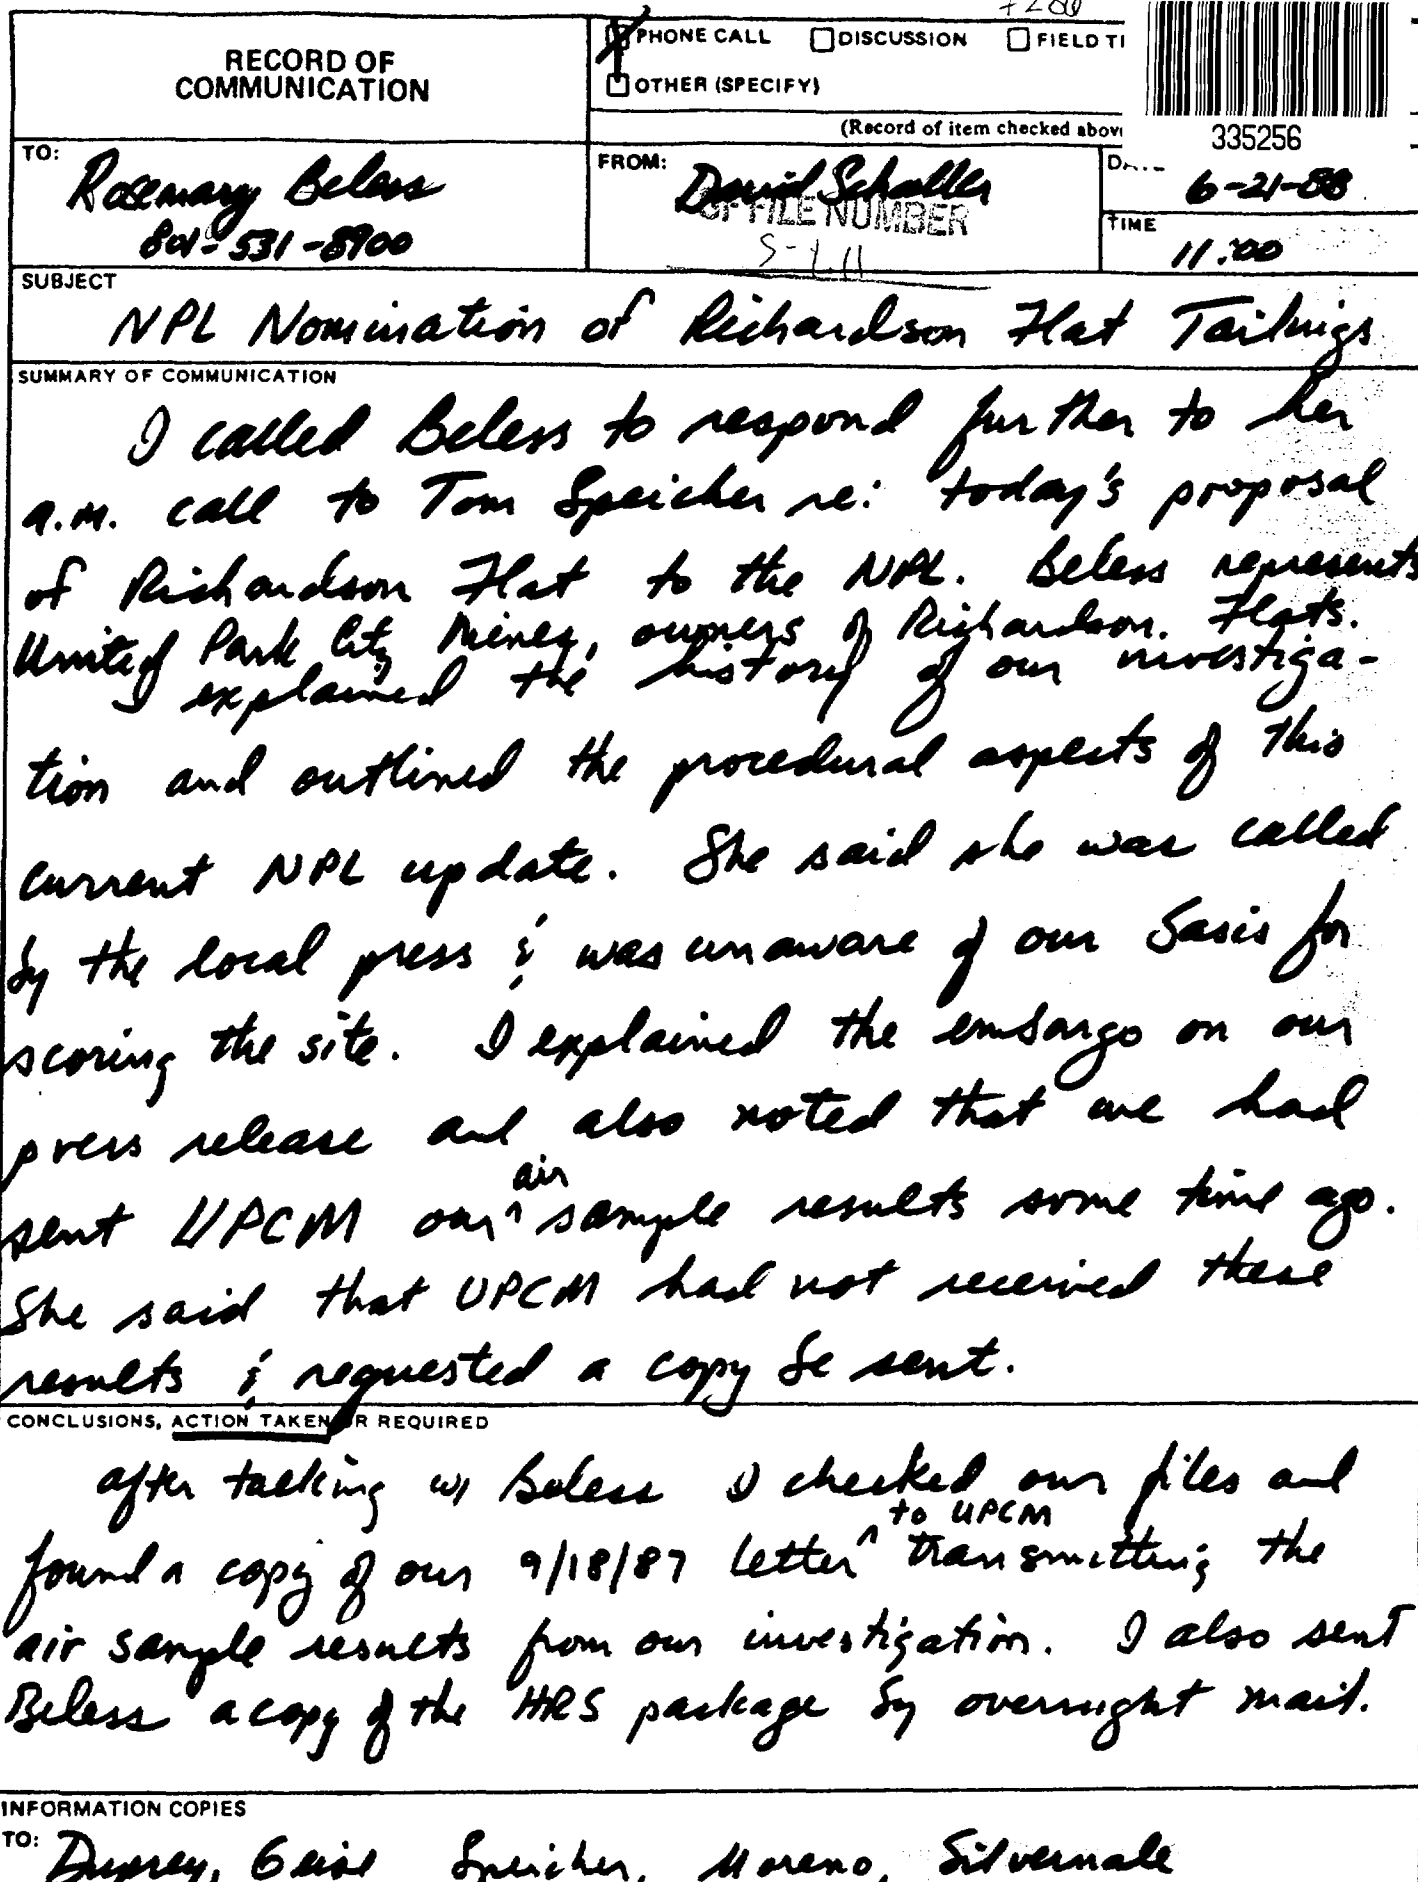 RECORD OF
COMMUNICATION
PHONE CALL DISCUSSION FIELD TI
OTHER (SPECIFY)
(Record of item checked above
335256
TO:
Rosemary Beless
801-531-8900
FROM:
David Schaller
SF FILE NUMBER
DATE
6-21-88
TIME
11:00
SUBJECT
NPL Nomination of Richardson Flat Tailings
SUMMARY OF COMMUNICATION
I called Beless to respond further to her
a.m. call to Tom Speicher re: today's proposal
of Richardson Flat to the NPL. Beless represents
United Park City Mines, owners of Richardson Flats.
I explained the history of our investiga-
tion and outlined the procedural aspects of this
current NPL update. She said she was called
by the local press & was unaware of our basis for
scoring the site. I explained the embargo on our
press release and also noted that we had
sent UPCM our air sample results some time ago.
She said that UPCM had not received these
results & requested a copy be sent.
CONCLUSIONS, ACTION TAKEN OR REQUIRED
after talking w/ Beless I checked our files and
found a copy of our 9/18/87 letter to UPCM transmitting the
air sample results from our investigation. I also sent
Beless a copy of the HRS package by overnight mail.
INFORMATION COPIES
TO:
Duprey, Geise Speicher, Moreno, Silvernale